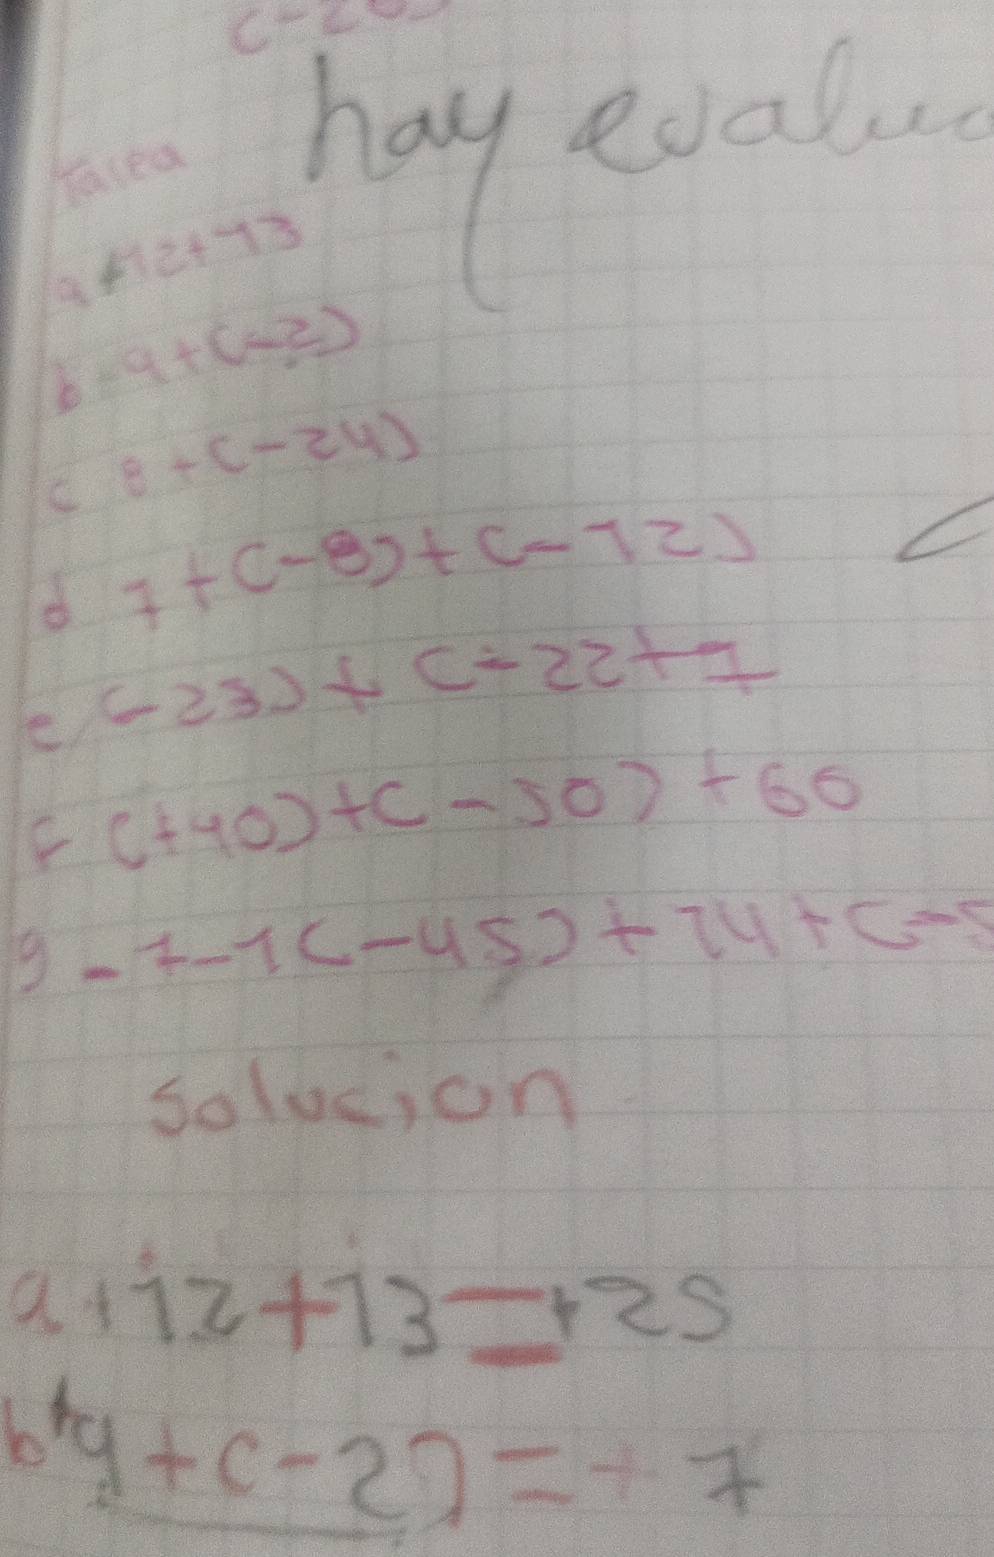 hay
Tarea
a +12+13
b 9+(-2)
c 8+(-24)
d 7+(-8)+(-12)
e (-23)+(-22+7
f (+40)+(-50)+60
g -7-1(-45)+24+(-5
solucion
a +12+13=+25
b +9+(-2)=+7